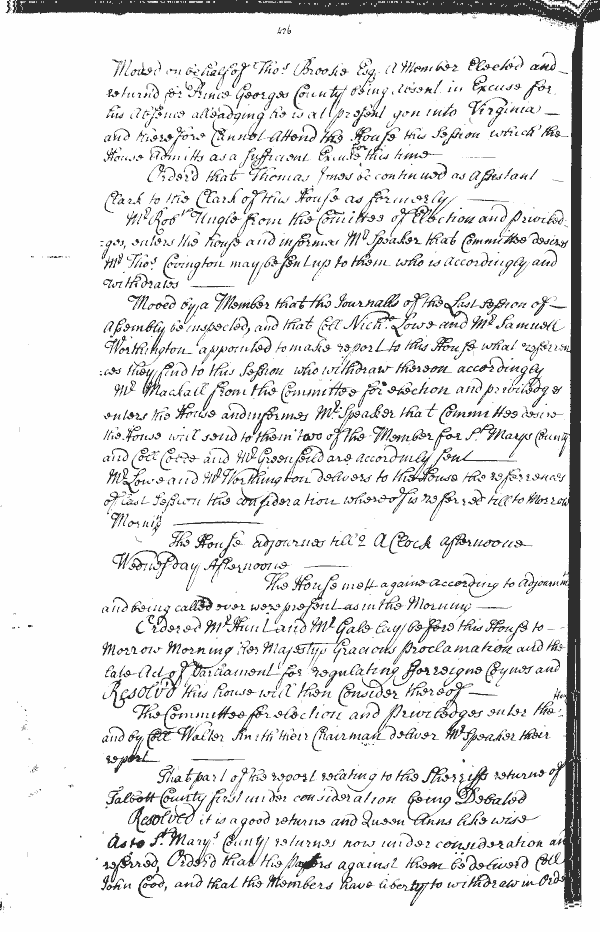 476
Moved on behalf of Thos. Brooke Esq. A Member Elected and
returnd for Prince Georges County being absent in Excuse for
his Absence alleadging he is at present gon into Virginia
and therefore Cannot attend the House this Session which the
House Admitts as a sufficient Excuse for this time
Orderd that Thomas Jones be continued as Assistant
Clark to the Clark of this House as formerly
Mr. Robt. Ungle from the Comittee of Election and priviled-
ges, enters the house and informes Mr. Speaker that Committee desires
Mr. Thos. Covington may be sent up to them who is accordingly and
withdrates
Moved by a Member that the Journalls of the Last session of
Assembly be inspected, and that Coll Nich. Lowe and Mr. Samuell
Worthington appointed to make report to this House what referren
ces they find to this Session who withdraw thereon accordingly
Mr. Mackall from the Committee for election and priviledges
enters the House and informes Mr. Speaker that Committee desire
the House will send to them two of the Member for St. Marys County
and Coll and Mr. Greenfeild are accordinly sent
Mr. Lowe and Mr. Worthington delivers to the House the referrences
of last Session the consideration whereof is referred till to morrow
Morning
The House adjournes till 2 A Clock afternoone
Wednesday Afternoone
The House mett againe according to adjournmt.
and being called over were present as in the Morning
Ordered Mr. Hunt and Mr. Gale lay before this House to
Morrow Morning her Majestys Gracious Proclamation and the
late Act of Parliament for regulating fforreigne Coynes and
Resolvd this house will then Consider thereof
The Committee for election and Priviledges enter the
and by Coll Walter Smith their Chairman deliver Mr. Speaker their
report
That part of the report relating to the Sherriffs returne of
Talbott County first under consideration being Debated
Resolved it is a good returne and Queen Anns likewise
As to St. Marys County returnes now under consideration an
referred, Orderd that the papers against them be deliverd Coll
John Cood, and that the Members have liberty to withdraw in Orde